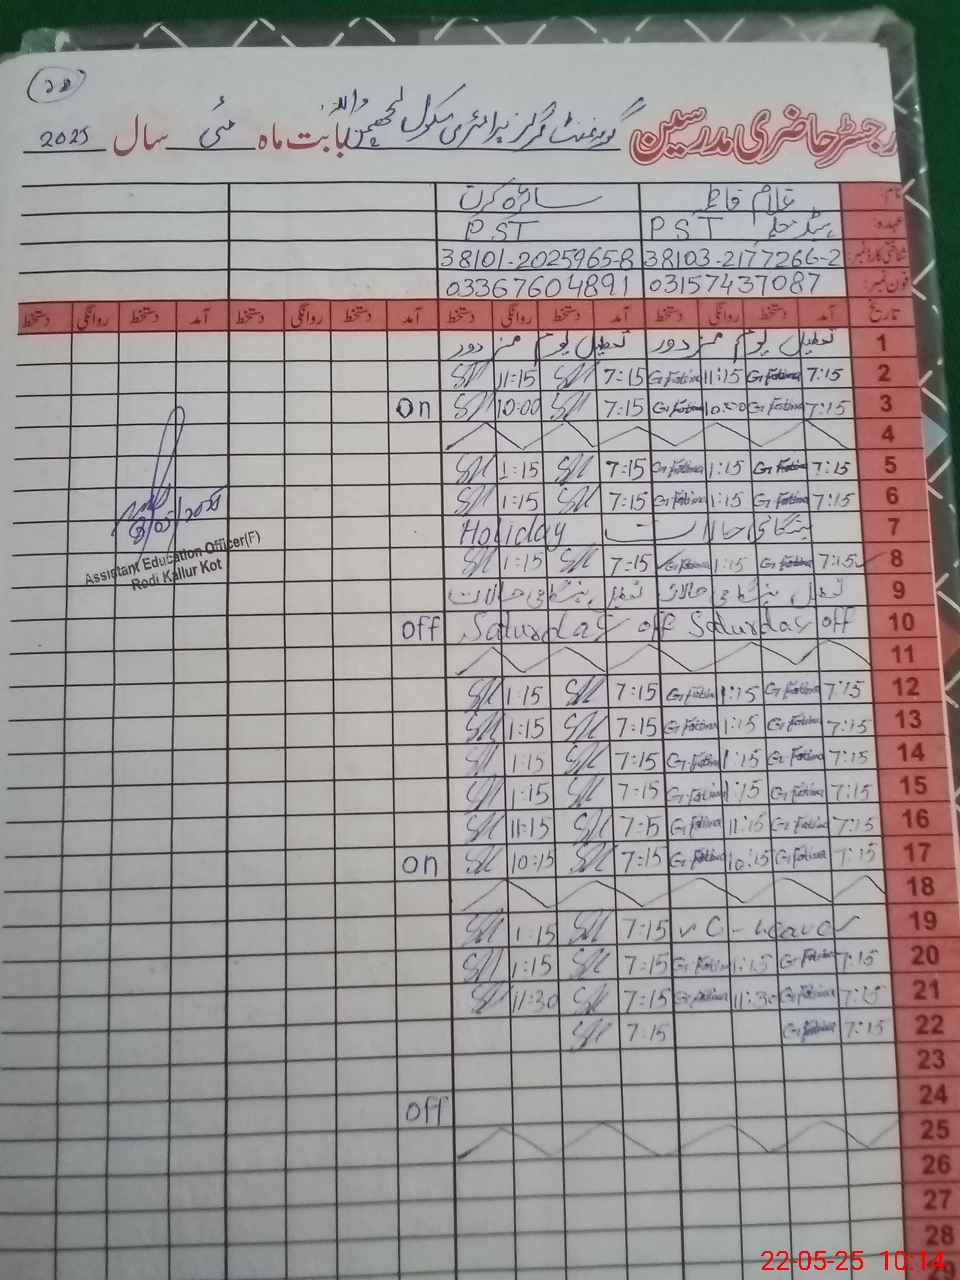 28
رجسٹر حاضری مدرسین گورنمنٹ گرلز پرائمری سکول بابت ماہ مئی سال 2025
نام: غلام فاطمہ سائرہ کرن
عہدہ: PST PST
شناختی کارڈ نمبر: 38103-2177266-2 38101-2025965-8
فون نمبر: 03157437087 03367604891
تاریخ آمد دستخط روانگی دستخط آمد دستخط روانگی دستخط آمد دستخط روانگی دستخط آمد دستخط روانگی دستخط
1 تعطیل یوم مزدور تعطیل یوم مزدور
2 7:15 G.Fatima 11:15 G.Fatima 7:15 11:15
3 7:15 G.Fatima 10:00 G.Fatima 7:15 10:00 On
4
5 7:15 G.Fatima 1:15 G.Fatima 7:15 1:15
6 7:15 G.Fatima 1:15 G.Fatima 7:15 1:15
7 ہنگامی حالات Holiday
8 7:15 G.Fatima 1:15 G.Fatima 7:15 1:15
9 تعطیل ہنگامی حالات تعطیل ہنگامی حالات
10 Saturday off Saturday off off
11
12 7:15 G.Fatima 1:15 G.Fatima 7:15 1:15
13 7:15 G.Fatima 1:15 G.Fatima 7:15 1:15
14 7:15 G.Fatima 1:15 G.Fatima 7:15 1:15
15 7:15 G.Fatima 1:15 G.Fatima 7:15 1:15
16 7:15 G.Fatima 11:15 G.Fatima 7:15 11:15
17 7:15 G.Fatima 10:15 G.Fatima 7:15 10:15 On
18
19 C-Leave 7:15 1:15
20 7:15 G.Fatima 1:15 G.Fatima 7:15 1:15
21 7:15 G.Fatima 11:30 G.Fatima 7:15 11:30
22 7:15 G.Fatima 7:15
23
24 off
25
26
27
28
29
Assistant Education Officer(F)
Rodi Kallur Kot
22-05-25 10:14